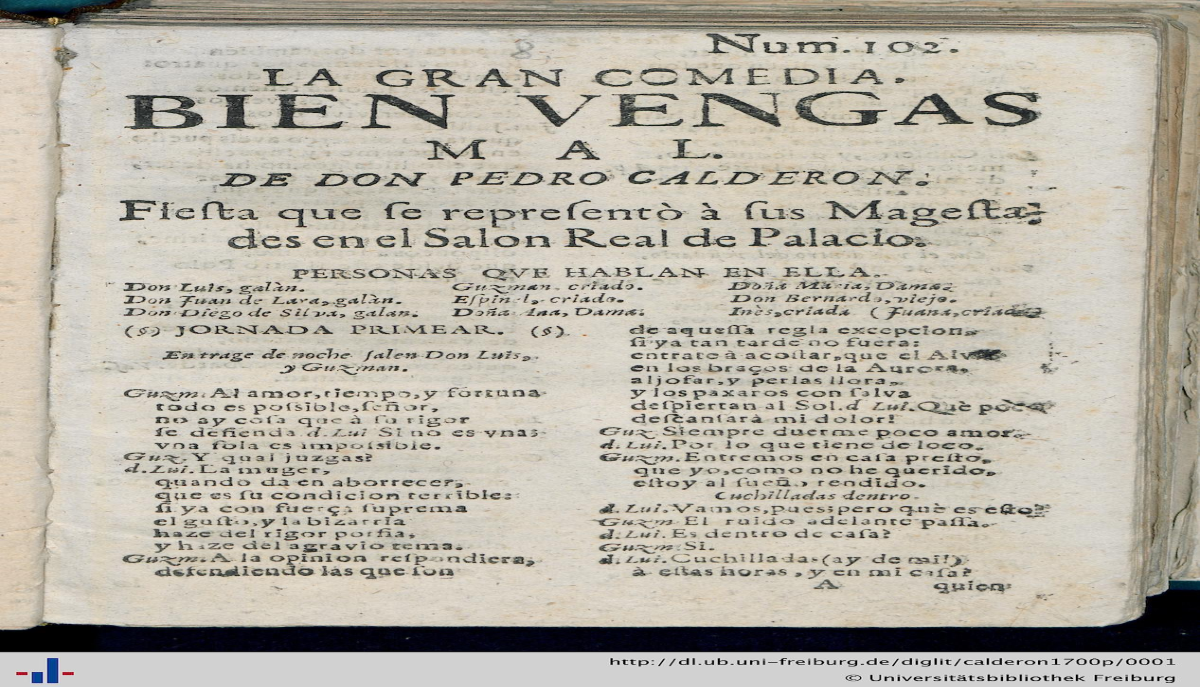 Num. 102.
LA GRAN COMEDIA.
BIEN VENGAS
MAL.
DE DON PEDRO CALDERON.
Fiesta que se representò à sus Magesta-
des en el Salon Real de Palacio.
PERSONAS QVE HABLAN EN ELLA.
Don Luis, galàn. Guzman criado. Doña Maria, Dama.
Don Juan de Lara, galàn. Espinel, criado. Don Bernardo, viejo.
Don Diego de Silva, galan. Doña Ana, Dama. Inès, criada (Juana, criada
(§) JORNADA PRIMEAR. (§)
En trage de noche salen Don Luis,
y Guzman.
Guzm. Al amor, tiempo, y fortuna
todo es possible, señor,
no ay cosa que à su rigor
se defienda. d. Lui. Si no es vna:
vna sola es impossible.
Guz. Y qual juzgas?
d. Lui. La muger,
quando da en aborrecer,
que es su condicion terrible:
si ya con fuerça suprema
el gusto, y la bizarria
haze del rigor porfia,
y haze del agravio tema.
Guzm. A la opinion respondiera,
defendiendo las que son
de aquessa regla excepcion,
si ya tan tarde no fuera:
entrate à acostar, que el
en los braços de la Aurora,
aljofar, y perlas llora,
y los paxaros con salva
despiertan al Sol. d. Lui. Què poco
descansarà mi dolor!
Guz. Siempre duerme poco amor.
d. Lui. Por lo que tiene de loco.
Guzm. Entremos en casa presto,
que yo, como no he querido,
estoy al sueño rendido.
Cuchilladas dentro.
d. Lui. Vamos, pues; pero què es esto?
Guzm. El ruido adelante passa.
d. Lui. Es dentro de casa?
Guzm. Si.
d. Lui. Cuchilladas (ay de mi!)
à estas horas, y en mi casa?
A quien
http://dl.ub.uni-freiburg.de/diglit/calderon1700p/0001
© Universitätsbibliothek Freiburg